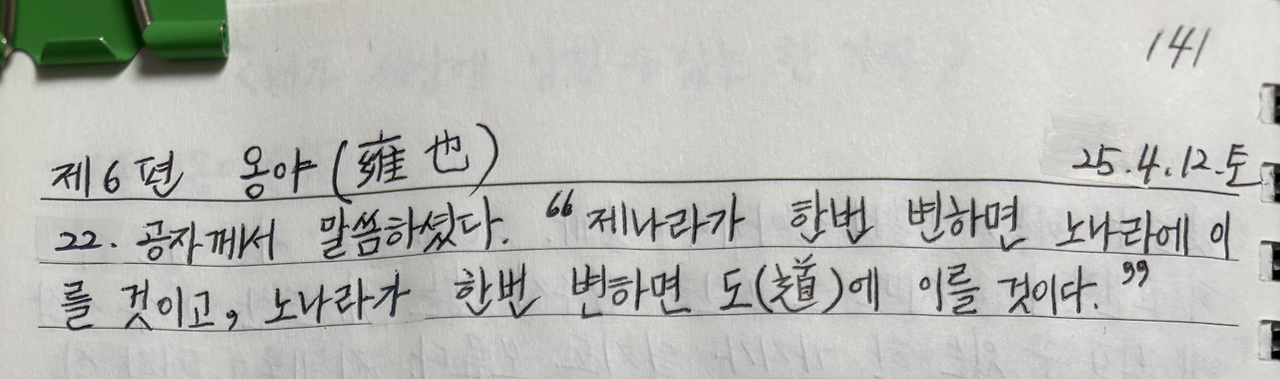 141
제6편 옹야(雍也) 25.4.12.토
22. 공자께서 말씀하셨다. “제나라가 한번 변하면 노나라에 이
를 것이고, 노나라가 한번 변하면 도(道)에 이를 것이다.”